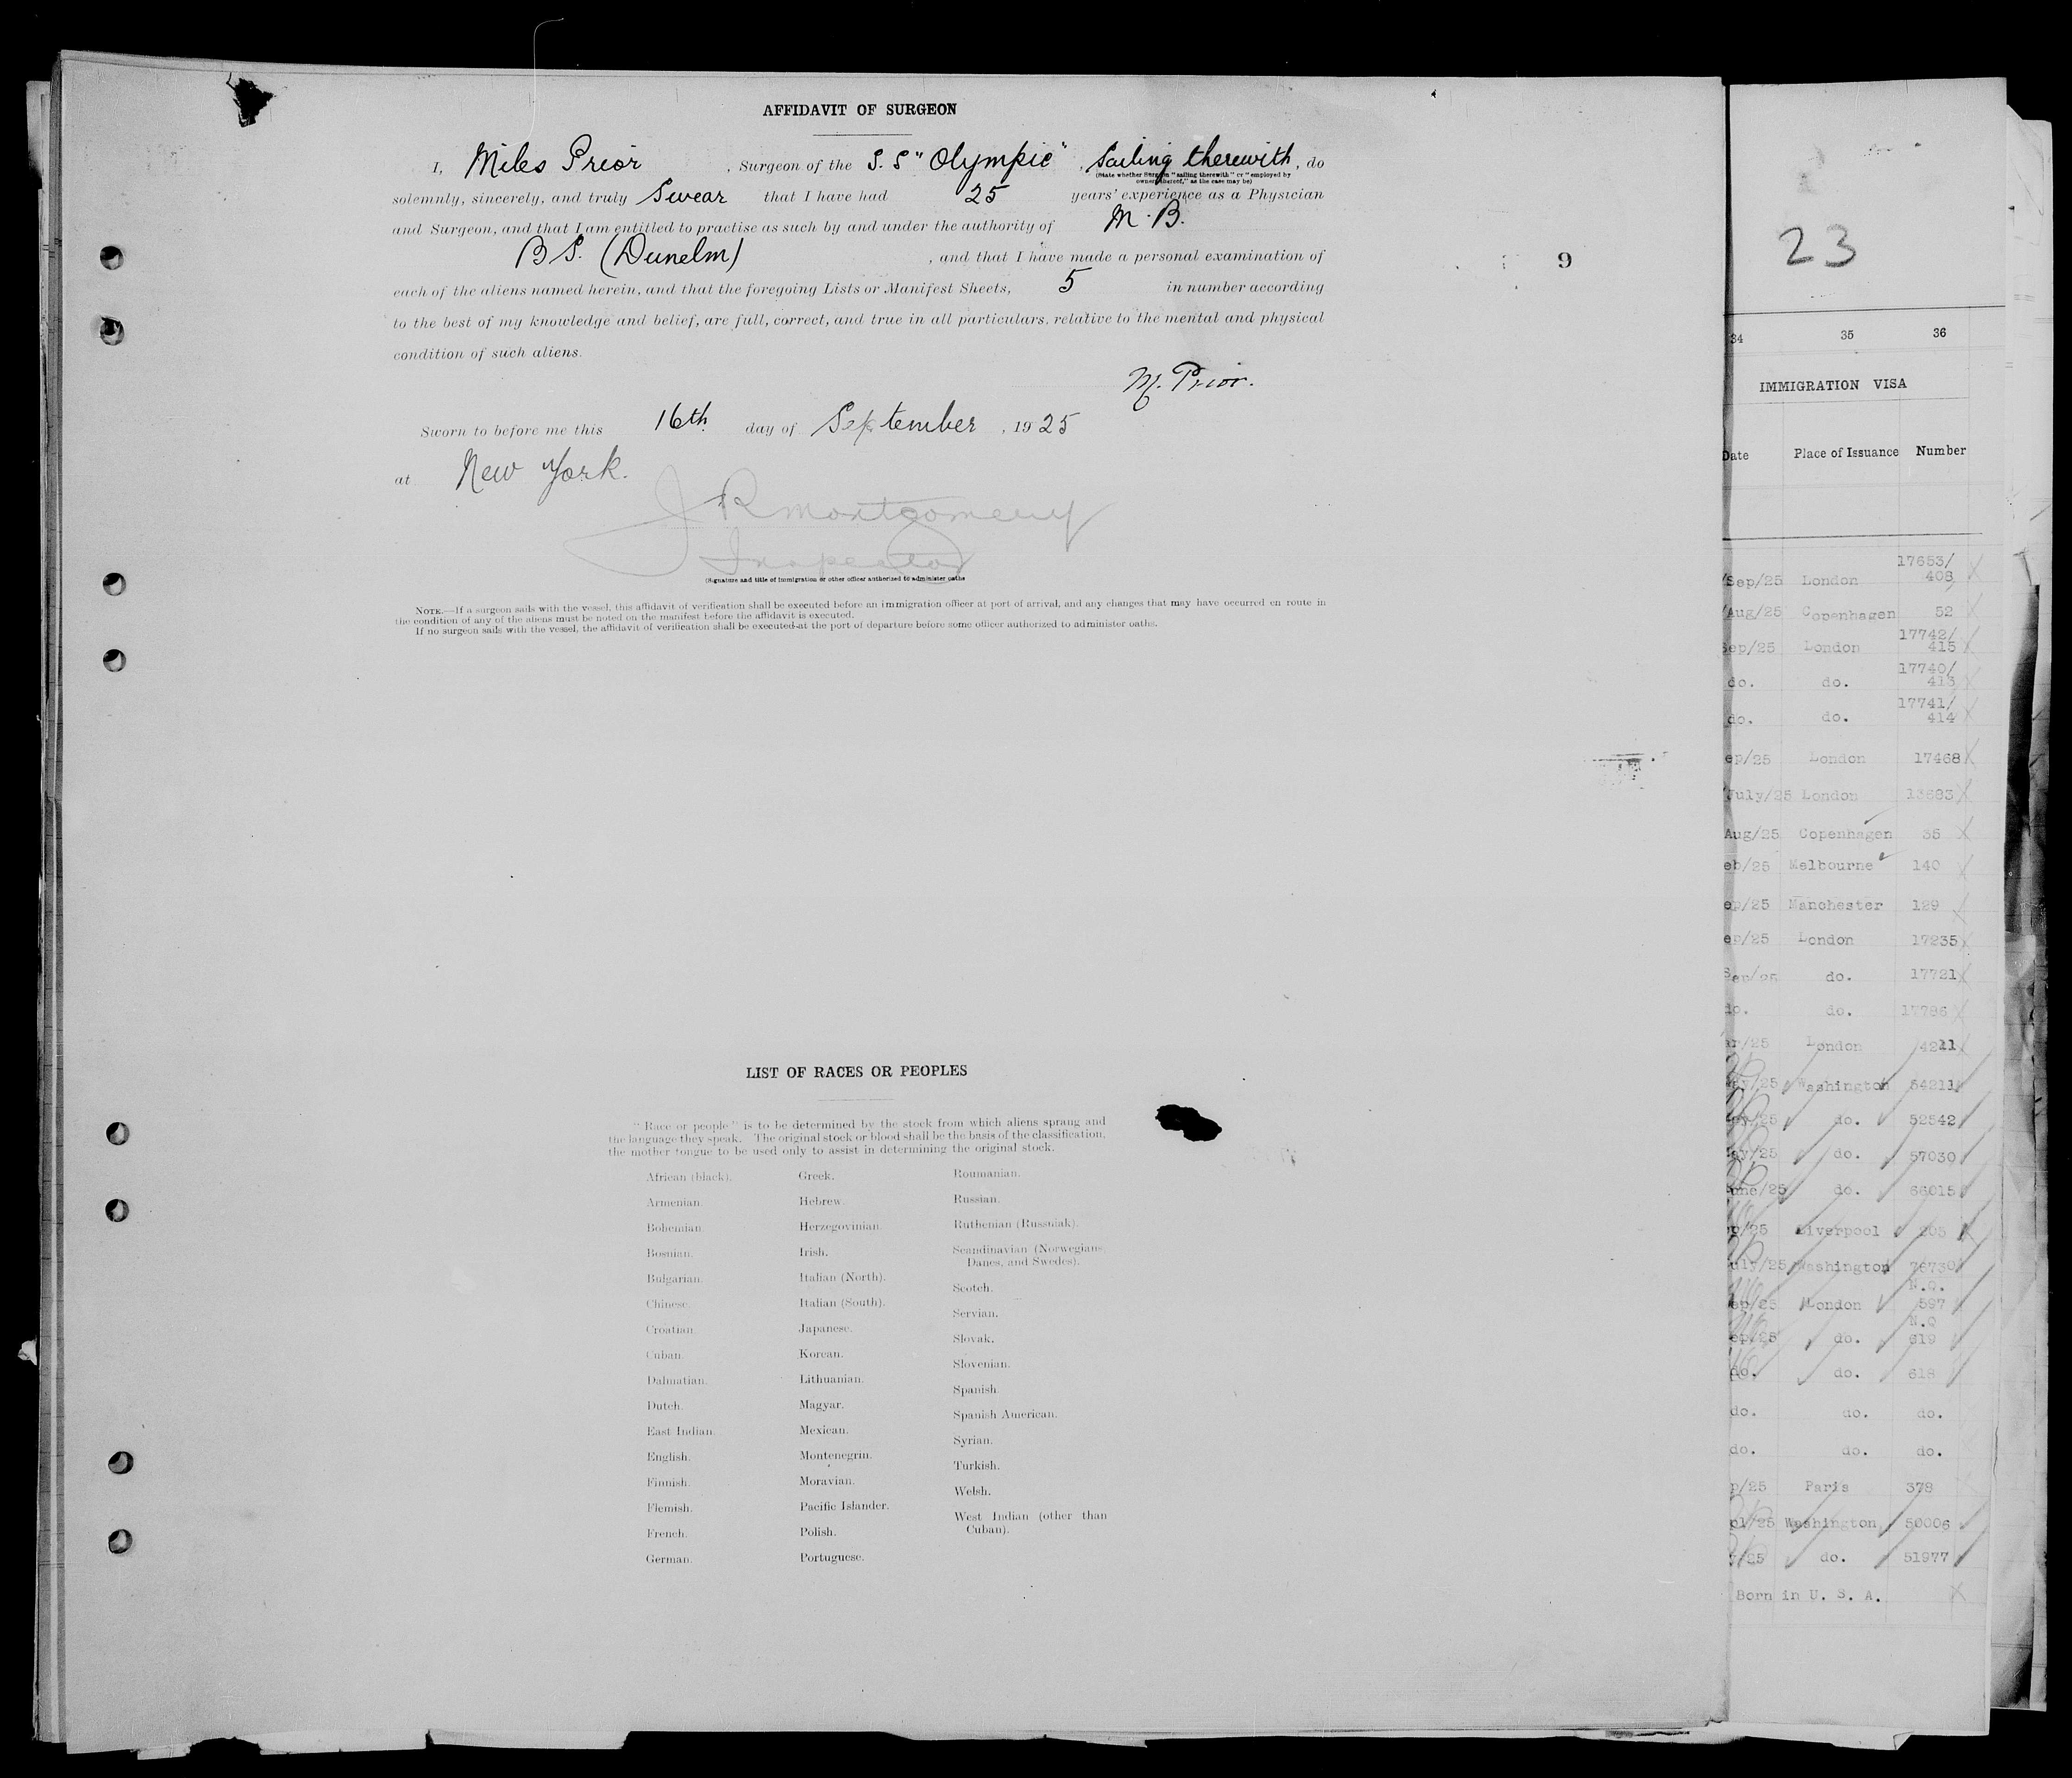 AFFIDAVIT OF SURGEON
I, Miles Prior, Surgeon of the S.S "Olympic", Sailing therewith, do
(State whether Surgeon "sailing therewith" or "employed by
owners thereof," as the case may be)
solemnly, sincerely, and truly Swear that I have had 25 years' experience as a Physician
and Surgeon, and that I am entitled to practise as such by and under the authority of M.B.
B S. (Dunelm), and that I have made a personal examination of
each of the aliens named herein, and that the foregoing Lists or Manifest Sheets, 5 in number according
to the best of my knowledge and belief, are full, correct, and true in all particulars, relative to the mental and physical
condition of such aliens.
M. Prior.
Sworn to before me this 16th day of September, 1925
at New York.
J R Montgomery
Inspector
(Signature and title of immigration or other officer authorized to administer oaths
NOTE.—If a surgeon sails with the vessel, this affidavit of verification shall be executed before an immigration officer at port of arrival, and any changes that may have occurred en route in
the condition of any of the aliens must be noted on the manifest before the affidavit is executed.
If no surgeon sails with the vessel, the affidavit of verification shall be executed at the port of departure before some officer authorized to administer oaths.
9
LIST OF RACES OR PEOPLES
"Race or people" is to be determined by the stock from which aliens sprang and
the language they speak. The original stock or blood shall be the basis of the classification,
the mother tongue to be used only to assist in determining the original stock.
African (black).
Armenian.
Bohemian.
Bosnian.
Bulgarian.
Chinese.
Croatian.
Cuban.
Dalmatian.
Dutch.
East Indian.
English.
Finnish.
Flemish.
French.
German.
Greek.
Hebrew.
Herzegovinian.
Irish.
Italian (North).
Italian (South).
Japanese.
Korean.
Lithuanian.
Magyar.
Mexican.
Montenegrin.
Moravian.
Pacific Islander.
Polish.
Portuguese.
Roumanian.
Russian.
Ruthenian (Russniak).
Scandinavian (Norwegians,
Danes, and Swedes).
Scotch.
Servian.
Slovak.
Slovenian.
Spanish
Spanish American.
Syrian.
Turkish.
Welsh.
West Indian (other than
Cuban).
23
34 35 36
IMMIGRATION VISA
Date Place of Issuance Number
17653/
/Sep/25 London 408
/Aug/25 Copenhagen 52
17742/
Sep/25 London 415
17740/
do. do. 413
17741/
do. do. 414
ep/25 London 17468
/July/25 London 13683
Aug/25 Copenhagen 35
eb/25 Melbourne 140
ep/25 Manchester 129
ep/25 London 17235
Sep/25 do. 17721
do. do. 17786
ar/25 London 4211
ay/25 Washington 54211
do. 52542
ay/25 do. 57030
une/25 do. 66015
/25 Liverpool 205
uly/25 Washington 76730
N.Q.
ep/25 London 597
N.Q
ep/25 do. 619
do. do. 618
do. do. do.
do. do. do.
p/25 Paris 378
pl/25 Washington 50006
/25 do. 51977
Born in U. S. A.